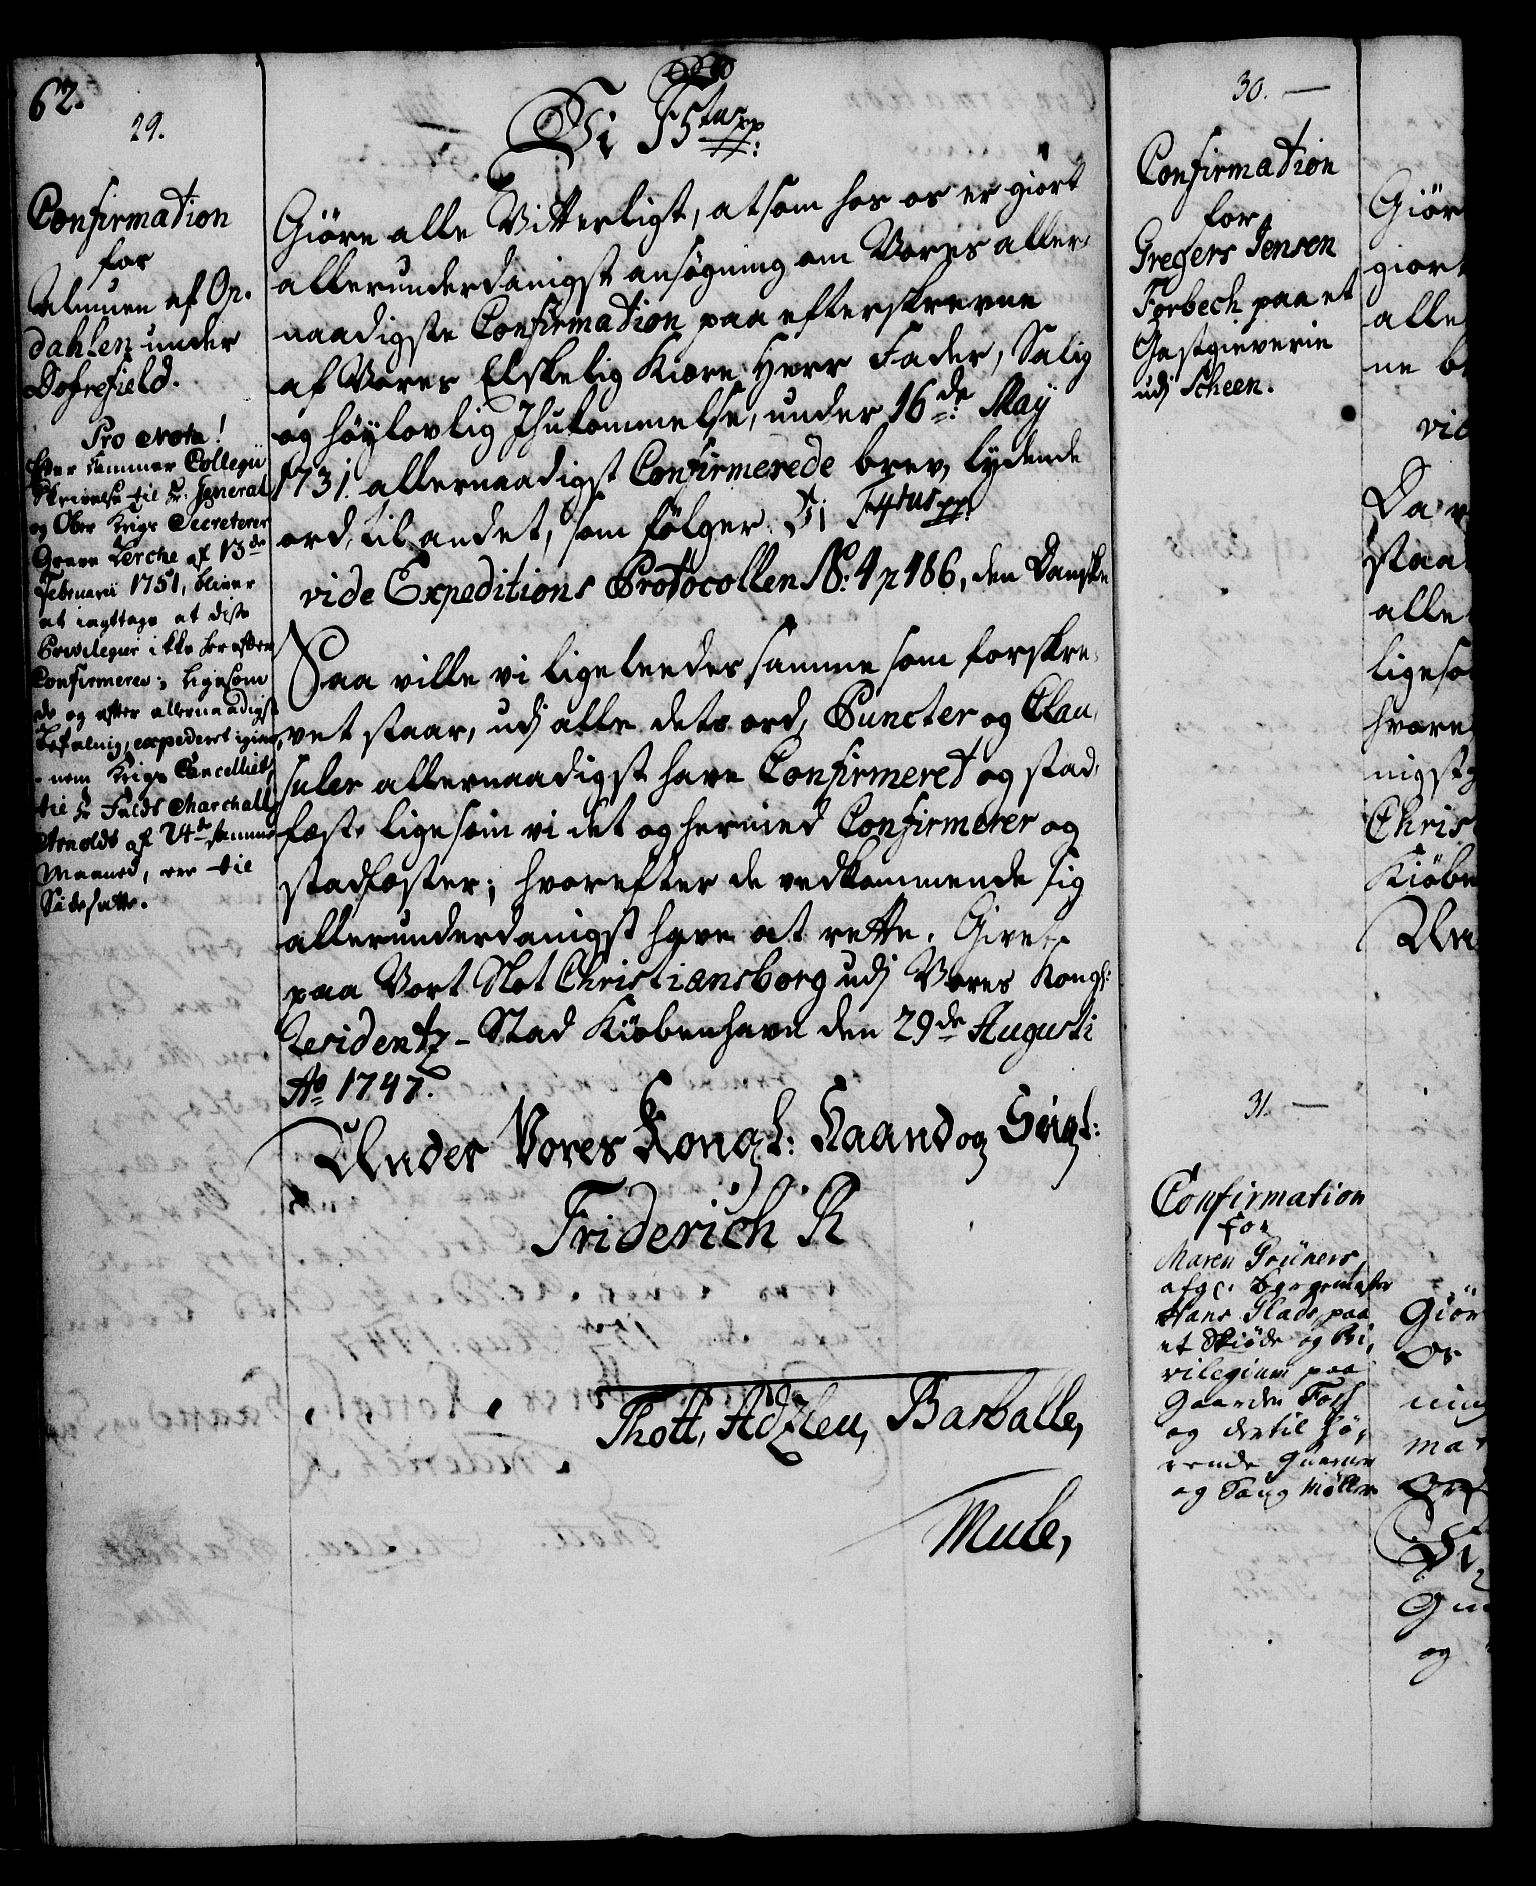 62.
29.
Confirmation
for
Almuen af Op.
dahlen under
Dofrefield.
Pro Nota!
Efter Kammer Collegii
Skrivelse til Hr. General
og Ober Krigs Secreterer
Greve Lerche af 13de
Februarii 1751, bliver
at iagttage at disse
Privilegier ikke herefter
Confirmeres; ligesom
de og efter allernaadigst
Befalning, expederet igien,
nem Krigs Cancelliet,
til Hr Feldt Marchall
Arnoldt af 24de samme
Maaned, ere til
Side satte.
Vi F5tus pp:
Giöre alle Vitterligt, at som hos os er giort
allerunderdanigst ansögning om Vores aller,
naadigste Confirmation paa efterskrevne
af Vores Elskelig Kiære Herr Fader, Salig
og höylovlig Ihukommelse, under 16de May
1731. allernaadigst Confirmerede brev, lydende
ord til andet, som fölger. Vi F4tus pp:
vide Expeditions Protocollen No: 4 p 186, den Danske
Saa ville vi ligeleedes samme som forskre,
vet staar, udj alle dets ord, Puncter og Clau,
suler allernaadigst have Confirmeret og stad,
fæst, ligesom vi det og hermed Confirmerer og
stadfæster; hvorefter de vedkommende sig
allerunderdanigst have at rette. Givet
paa Vort Slot Christiansborg udj Vores Kongl:
Residentz-Stad Kiöbenhavn den 29de Augusti
Ao 1747.
Under Vores Kongl: Haand og Signl:
Friderich R
Thott, Adzleu, Barballe,
Mule,
30. —
Confirmation
for
Gregers Jensen
Forbech paa et
Gastgieverie
udj Scheen.
31. —
Confirmation
for
Maren Prüners,
afg: Borgemester
Hans Plads, paa
et Skiöde og Pri,
vilegium paa
Gaarden Foss
og dertil hö,
rende Quærne
og Saug Möller
Giör
giort
alle
ne b
vid
Da v
staa
alle
ligeso
hvore
nigst
Chris
Kiöbe
Un
Giör
Os
ning
ma
og